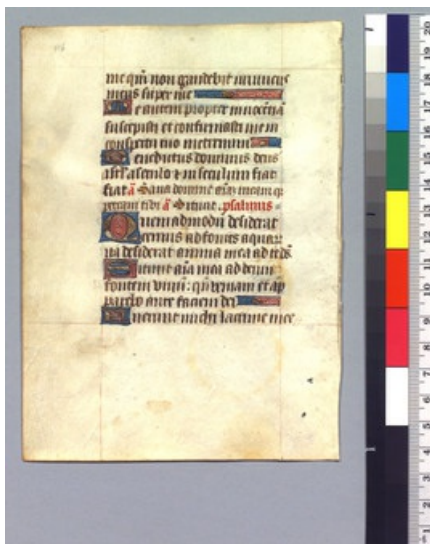 me qm̄ non gaudebit inimicus
meus super me
Me autem propter innocētiā
suscepisti et confirmasti me in
conspectu tuo in eternum
Benedictus dominus deus
isrl̄ a seculo ⁊ in seculum fiat
fiat ā Sana domine aīaȝ meam qr
peccaui tibi ā Sitiuit. psalmus
Quem admodū desiderat
ceruus ad fontes aquarr
ita desiderat anima mea ad te ds̄
Sitiuit aīa mea ad deum
fontem viuū: qn̄ veniam et ap
parebo ante faciem dei
Fuerunt michi lacrime mee
20
19
18
17
16
15
14
13
12
11
10
9
8
7
6
5
4
3
2
1